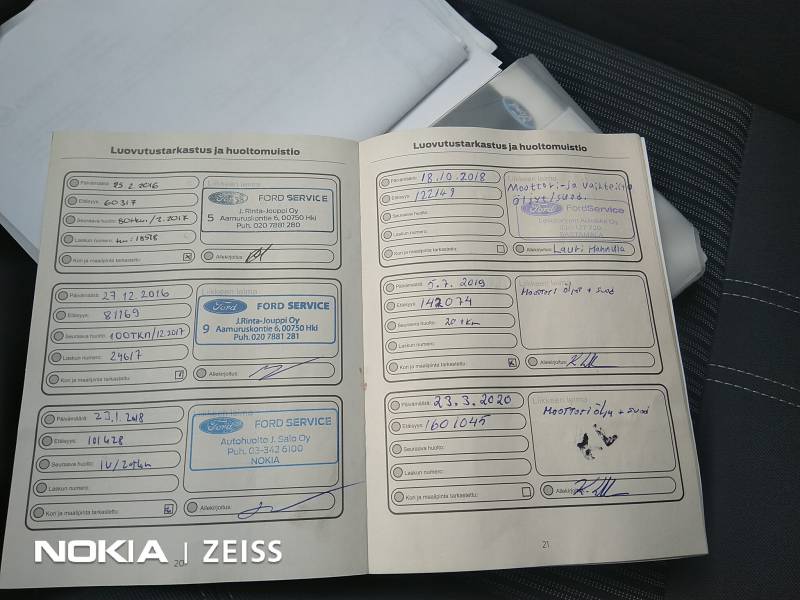 Luovutustarkastus ja huoltomuistio
Päivämäärä: 25 2 2016
Etäisyys: 60317
Seuraava huolto: 80tkm/2.2017
Laskun numero:
Kori ja maalipinta tarkastettu:
Liikkeen leima
Ford FORD SERVICE
5 J.Rinta-Jouppi Oy
Aamuruskontie 6, 00750 Hki
Puh. 020 7881 280
Allekirjoitus:
Päivämäärä: 27 12.2016
Etäisyys: 81169
Seuraava huolto: 100TKM/12.2017
Laskun numero: 24617
Kori ja maalipinta tarkastettu:
Liikkeen leima
Ford FORD SERVICE
9 J.Rinta-Jouppi Oy
Aamuruskontie 6, 00750 Hki
Puh. 020 7881 281
Allekirjoitus:
Päivämäärä: 23.1.2018
Etäisyys: 101428
Seuraava huolto: 1V/20tkm
Laskun numero:
Kori ja maalipinta tarkastettu:
Liikkeen leima
Ford FORD SERVICE
Autohuolto J. Salo Oy
Puh. 03-342 6100
NOKIA
Allekirjoitus:
20
Luovutustarkastus ja huoltomuistio
Päivämäärä: 18.10.2018
Etäisyys: 122149
Seuraava huolto:
Laskun numero:
Kori ja maalipinta tarkastettu:
Liikkeen leima
Moottori- ja
öljyt/suod.
Ford FordService
Allekirjoitus: Lauri
Päivämäärä: 5.7.2019
Etäisyys: 142074
Seuraava huolto: 20tkm
Laskun numero:
Kori ja maalipinta tarkastettu:
Liikkeen leima
Moottori öljyt + suod
Allekirjoitus:
Päivämäärä: 23.3.2020
Etäisyys: 1601045
Seuraava huolto:
Laskun numero:
Kori ja maalipinta tarkastettu:
Liikkeen leima
Moottori öljy + suod
Allekirjoitus:
21
NOKIA | ZEISS